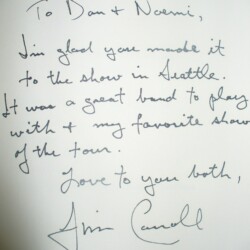 To Dan + Naemi,
I'm glad you made it
to the show in Seattle.
It was a great band to play
with + my favorite show
of the tour.
Love to you both,
Jim Carroll